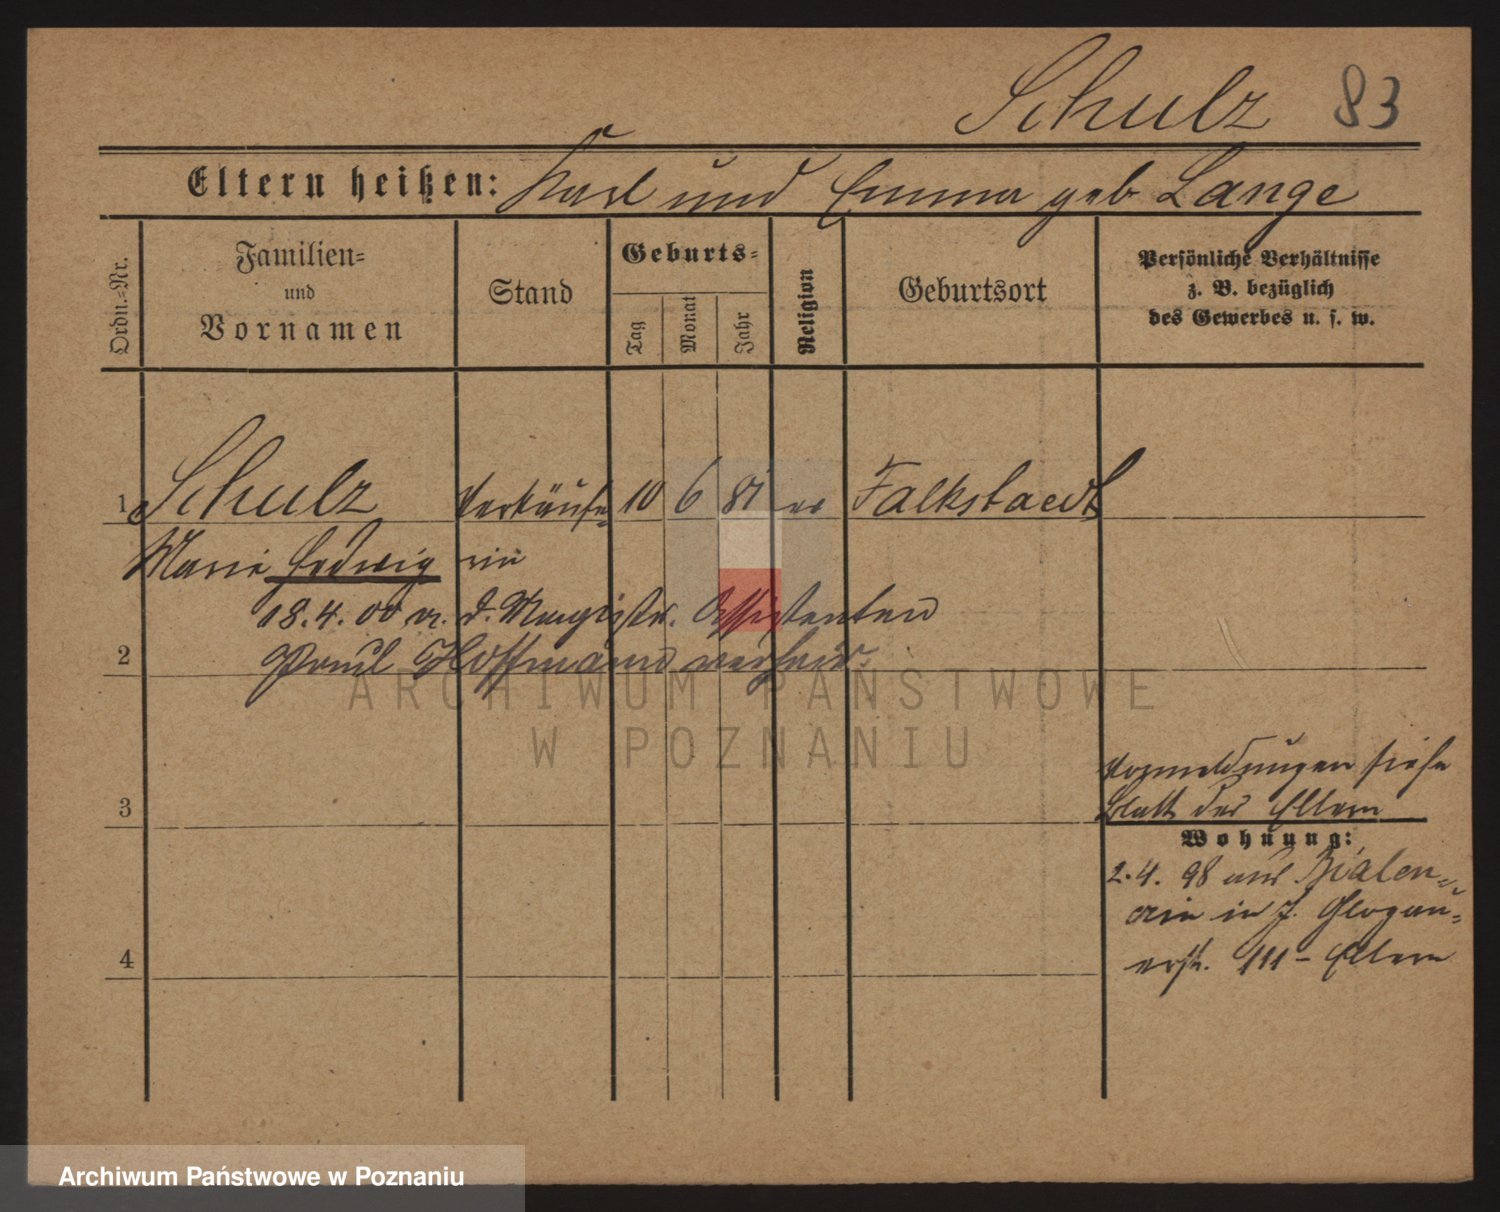 Schulz 83
Eltern heißen: Karl und Emma geb Lange
Ordn.-Nr.
Familien-
und
Vornamen
Stand
Geburts-
Tag
Monat
Jahr
Religion
Geburtsort
Persönliche Verhältnisse
z. B. bezüglich
des Gewerbes u. s. w.
1 Schulz Verkäufe- 10 6 81 ev Falkstaedt
Marie Hedwig rin
18.4.00 m. d. Magistr. Assistenten
2 Paul Hoffmann verheir.
ARCHIWUM PAŃSTWOWE
W POZNANIU
Vormeldungen siehe
3 Blatt der Eltern
Wohnung:
2.4.98 aus
in J. Glogau-
4 erstr. 111 - Eltern
Archiwum Państwowe w Poznaniu